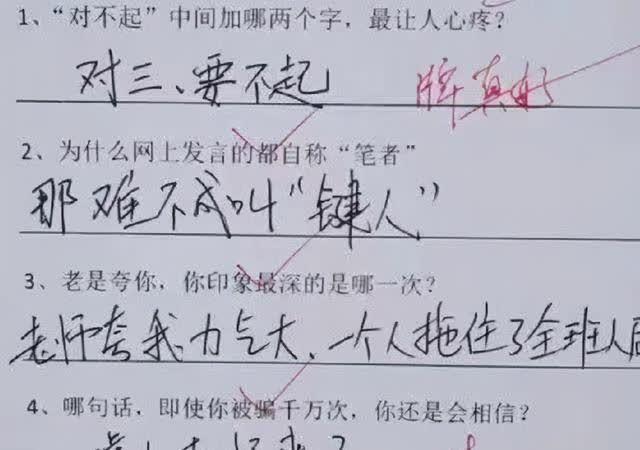 1、“对不起”中间加哪两个字，最让人心疼？
对三、要不起 牌真好
2、为什么网上发言的都自称“笔者”
那难不成叫“键人”
3、老是夸你，你印象最深的是哪一次？
老师夸我力气大、一个人拖住了全班人
4、哪句话，即使你被骗千万次，你还是会相信？